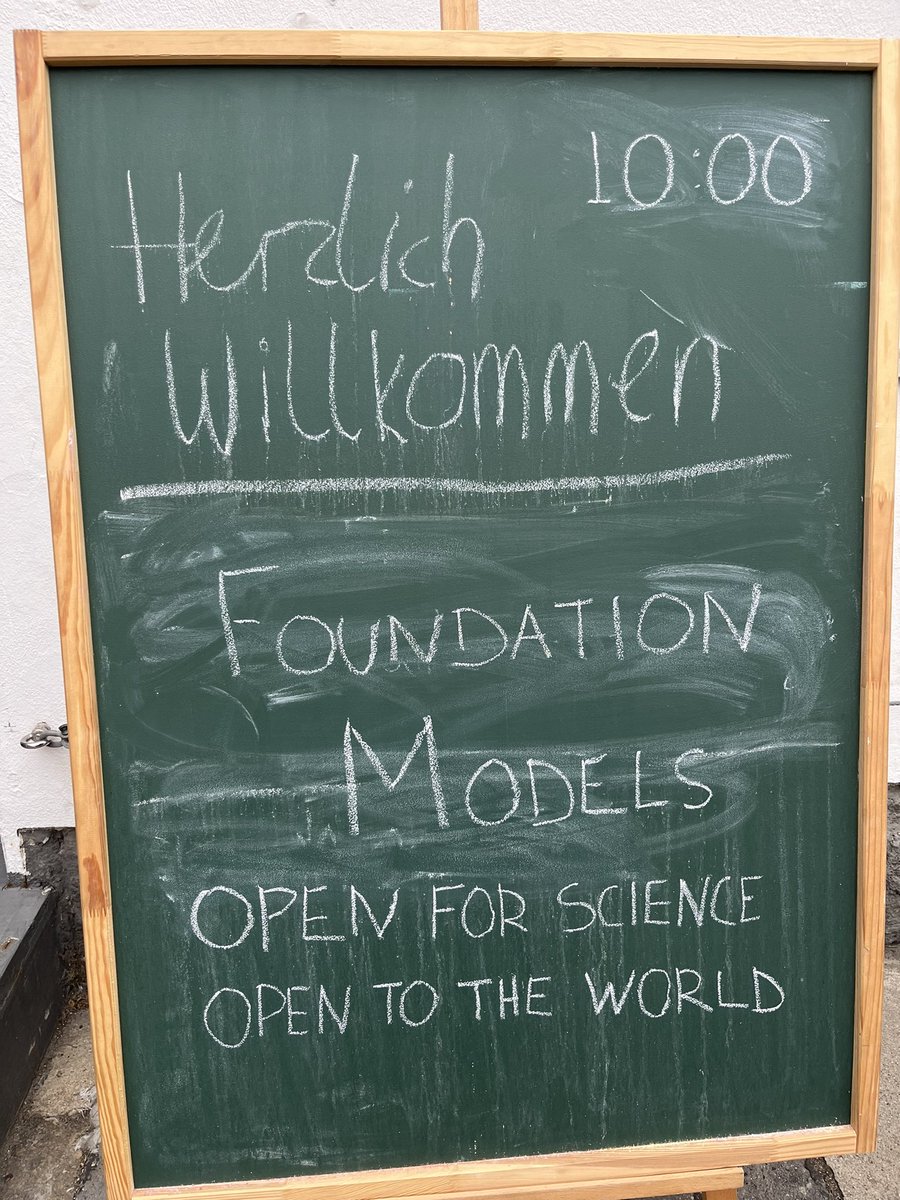 10:00
Herzlich
Willkommen
FOUNDATION
MODELS
OPEN FOR SCIENCE
OPEN TO THE WORLD